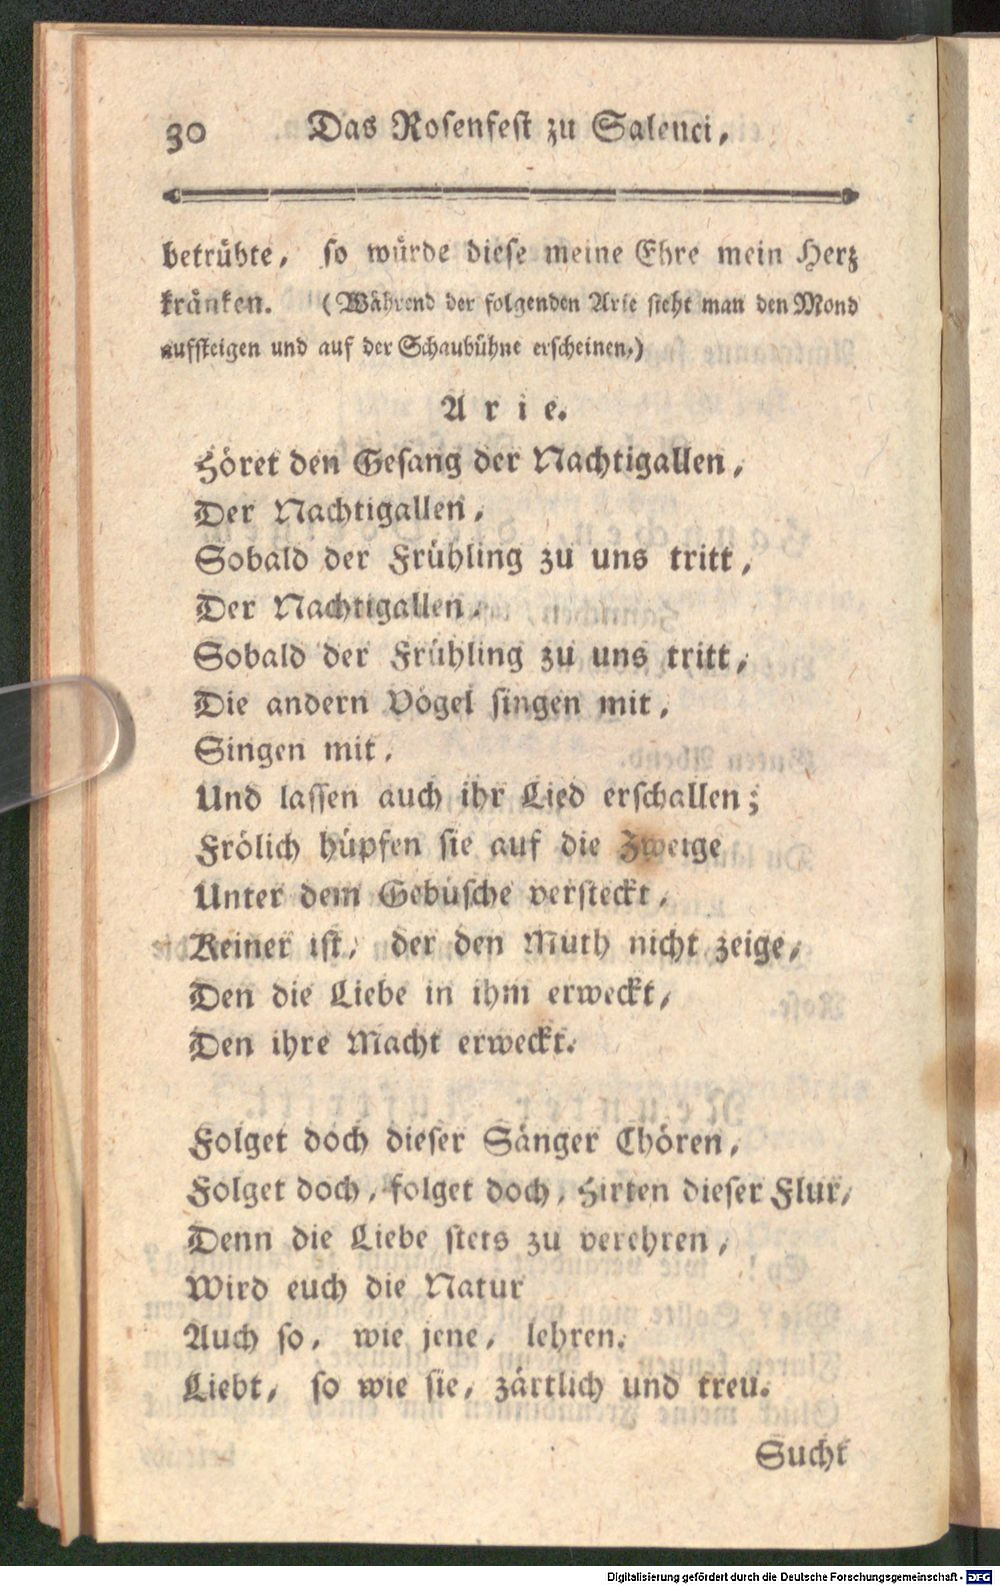 30 Das Rosenfest zu Salenci,
betrübte, so würde diese meine Ehre mein Herz
kränken. (Während der folgenden Arie sieht man den Mond
aufsteigen und auf der Schaubühne erscheinen.)
Arie.
Höret den Gesang der Nachtigallen,
Der Nachtigallen,
Sobald der Frühling zu uns tritt,
Der Nachtigallen,
Sobald der Frühling zu uns tritt,
Die andern Vögel singen mit,
Singen mit,
Und lassen auch ihr Lied erschallen;
Frölich hüpfen sie auf die Zweige
Unter dem Gebüsche versteckt,
Keiner ist, der den Muth nicht zeige,
Den die Liebe in ihm erweckt,
Den ihre Macht erweckt.
Folget doch dieser Sänger Chören,
Folget doch, folget doch, Hirten dieser Flur,
Denn die Liebe stets zu verehren,
Wird euch die Natur
Auch so, wie jene, lehren.
Liebt, so wie sie, zärtlich und treu.
Sucht
Digitalisierung gefördert durch die Deutsche Forschungsgemeinschaft - DFG